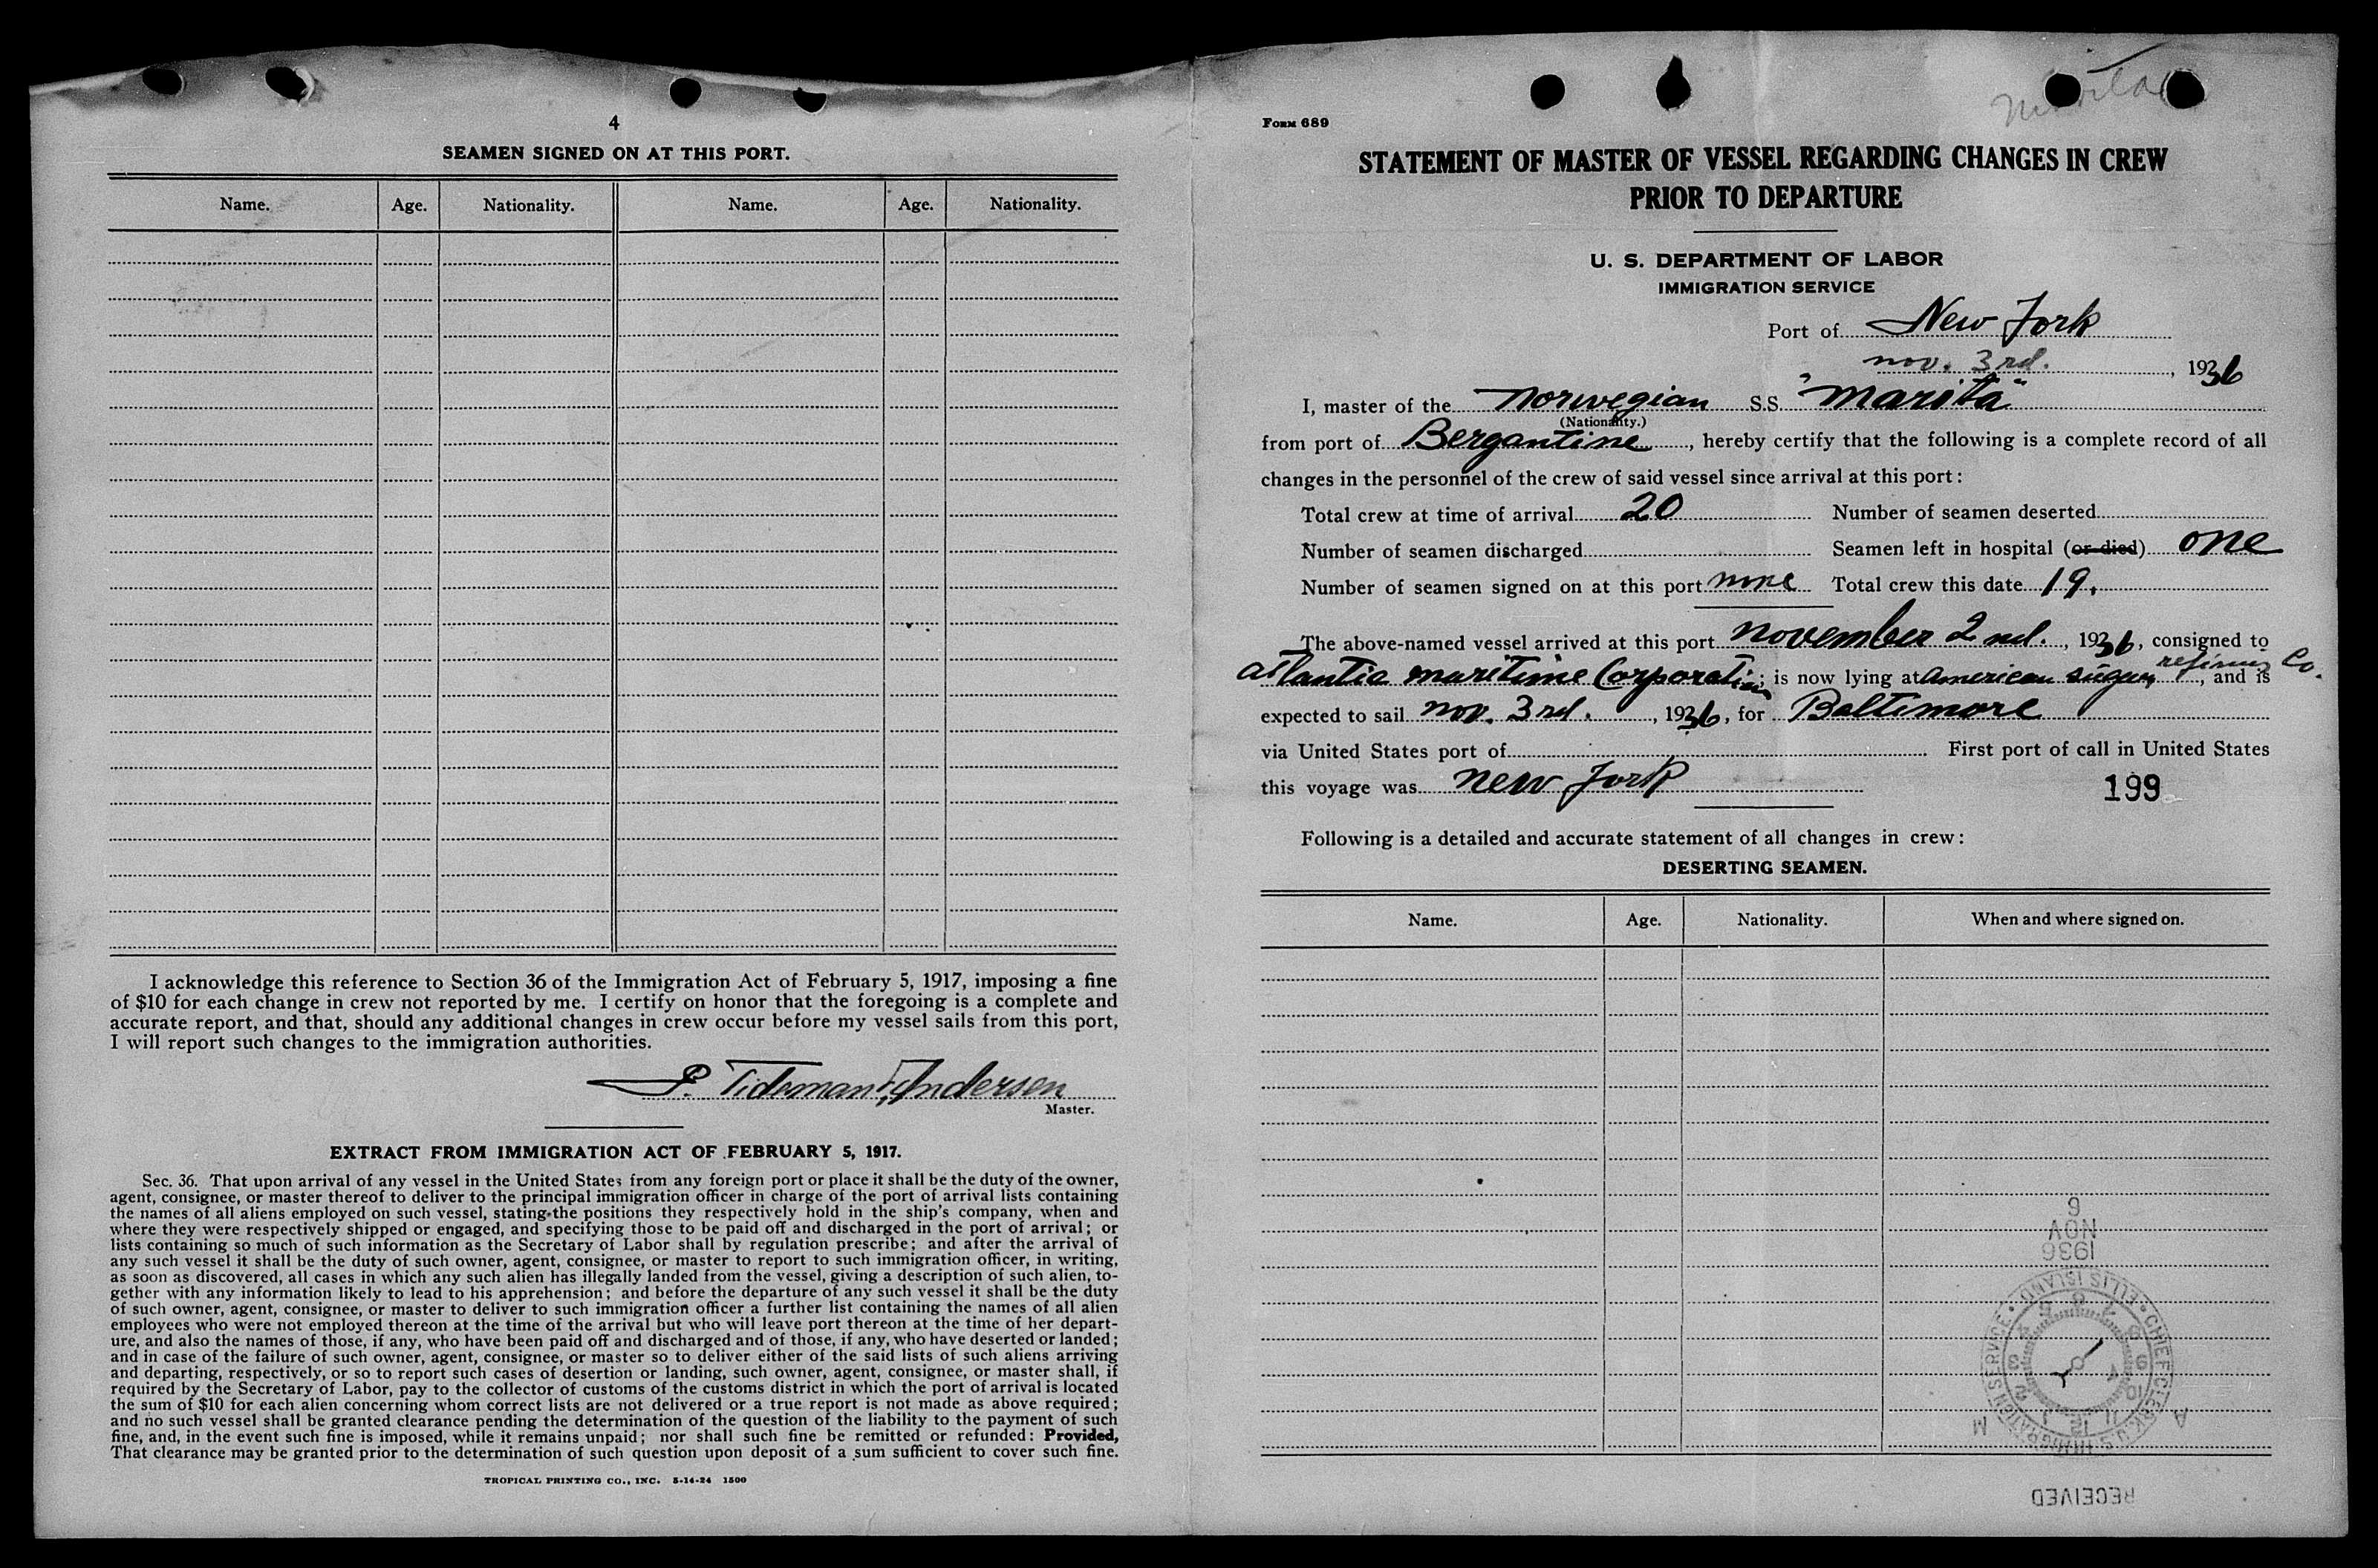 4
SEAMEN SIGNED ON AT THIS PORT.
Name. Age. Nationality. Name. Age. Nationality.
I acknowledge this reference to Section 36 of the Immigration Act of February 5, 1917, imposing a fine
of $10 for each change in crew not reported by me. I certify on honor that the foregoing is a complete and
accurate report, and that, should any additional changes in crew occur before my vessel sails from this port,
I will report such changes to the immigration authorities.
P. Tideman Andersen
Master.
EXTRACT FROM IMMIGRATION ACT OF FEBRUARY 5, 1917.
Sec. 36. That upon arrival of any vessel in the United States from any foreign port or place it shall be the duty of the owner,
agent, consignee, or master thereof to deliver to the principal immigration officer in charge of the port of arrival lists containing
the names of all aliens employed on such vessel, stating the positions they respectively hold in the ship's company, when and
where they were respectively shipped or engaged, and specifying those to be paid off and discharged in the port of arrival; or
lists containing so much of such information as the Secretary of Labor shall by regulation prescribe; and after the arrival of
any such vessel it shall be the duty of such owner, agent, consignee, or master to report to such immigration officer, in writing,
as soon as discovered, all cases in which any such alien has illegally landed from the vessel, giving a description of such alien, to-
gether with any information likely to lead to his apprehension; and before the departure of any such vessel it shall be the duty
of such owner, agent, consignee, or master to deliver to such immigration officer a further list containing the names of all alien
employees who were not employed thereon at the time of the arrival but who will leave port thereon at the time of her depart-
ure, and also the names of those, if any, who have been paid off and discharged and of those, if any, who have deserted or landed;
and in case of the failure of such owner, agent, consignee, or master so to deliver either of the said lists of such aliens arriving
and departing, respectively, or so to report such cases of desertion or landing, such owner, agent, consignee, or master shall, if
required by the Secretary of Labor, pay to the collector of customs of the customs district in which the port of arrival is located
the sum of $10 for each alien concerning whom correct lists are not delivered or a true report is not made as above required;
and no such vessel shall be granted clearance pending the determination of the question of the liability to the payment of such
fine, and, in the event such fine is imposed, while it remains unpaid; nor shall such fine be remitted or refunded: Provided,
That clearance may be granted prior to the determination of such question upon deposit of a sum sufficient to cover such fine.
TROPICAL PRINTING CO., INC. 5-14-24 1500
Form 689
STATEMENT OF MASTER OF VESSEL REGARDING CHANGES IN CREW
PRIOR TO DEPARTURE
U. S. DEPARTMENT OF LABOR
IMMIGRATION SERVICE
Port of New York
nov. 3rd. , 1936
I, master of the norwegian S.S. "marita"
(Nationality.)
from port of Bergantine, hereby certify that the following is a complete record of all
changes in the personnel of the crew of said vessel since arrival at this port:
Total crew at time of arrival 20 Number of seamen deserted
Number of seamen discharged Seamen left in hospital (or died) one
Number of seamen signed on at this port none Total crew this date 19.
The above-named vessel arrived at this port november 2nd. , 1936, consigned to
atlantia maritime Corporation; is now lying at american sugar refining Co., and is
expected to sail nov. 3rd. , 1936, for Baltimore
via United States port of First port of call in United States
this voyage was new York
199
Following is a detailed and accurate statement of all changes in crew:
DESERTING SEAMEN.
Name. Age. Nationality. When and where signed on.
6
NOV
1936
CHIEF CLERK U.S. IMMIGRATION SERVICE · ELLIS ISLAND ·
A M
RECEIVED